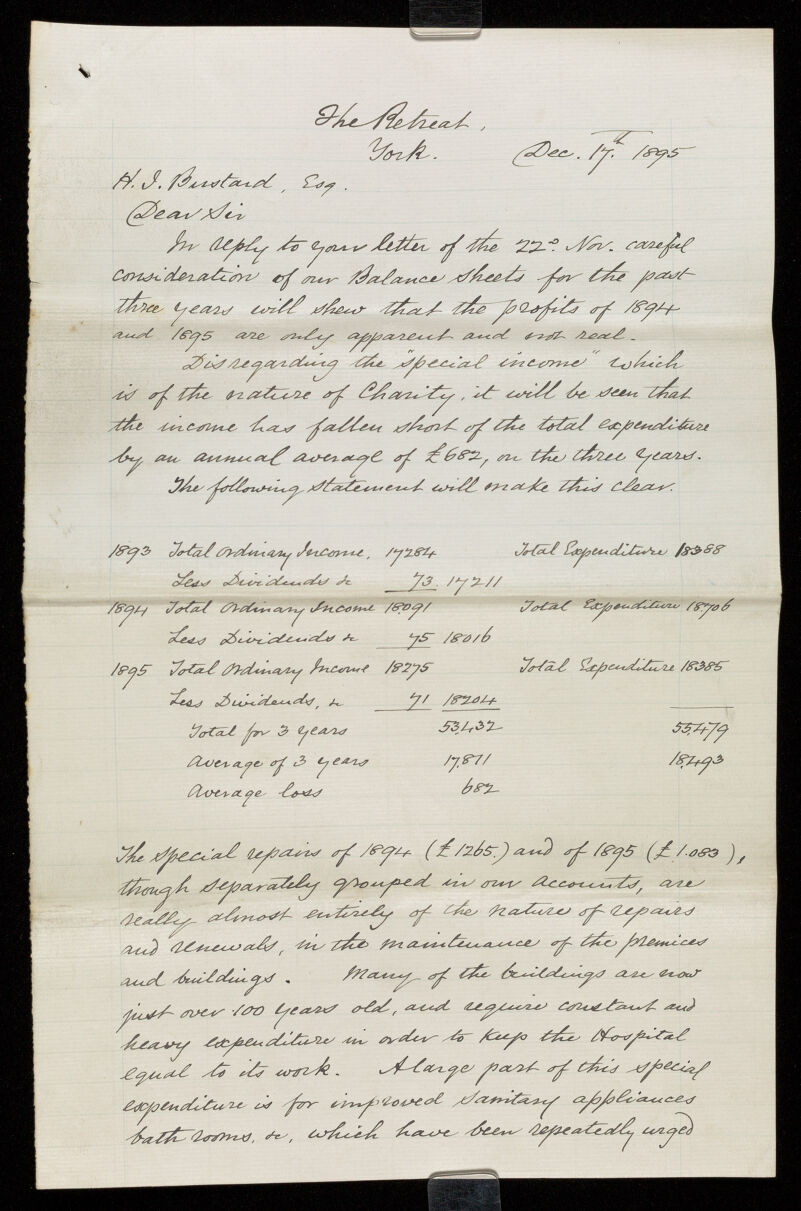 The Retreat,
York. Dec. 17th. 1895
H. J. Bustard, Esq.
Dear Sir
In reply to your letter of the 22d. Nov. careful
consideration of our Balance sheets for the past
three years will shew that the profits of 1894
and 1895 are only apparent and not real.
Disregarding the "special income" which
is of the nature of Charity, it will be seen that
the income has fallen short of the total expenditure
by an annual average of £682, on the three years.
The following statement will make this clear.
1893 Total ordinary Income, 17284 Total Expenditure 18388
Less Dividends &c 73. 17211
1894 Total ordinary Income 18091 Total Expenditure 18,706
Less Dividends &c 75 18016
1895 Total ordinary Income 18275 Total Expenditure 18385
Less Dividends, &c 71 18204
Total for 3 years 53,432 55,479
Average of 3 years 17,811 18,493
Average loss 682
The special repairs of 1894 (£1265.) and of 1895 (£1.083),
though separately grouped in our accounts, are
really almost entirely of the nature of repairs
and renewals, in the maintenance of the premices
and buildings. Many of the buildings are now
just over 100 years old, and require constant and
heavy expenditure in order to keep the Hospital
equal to its work. A large part of this special
expenditure is for improved sanitary appliances
bath rooms, &c, which have been repeatedly urged